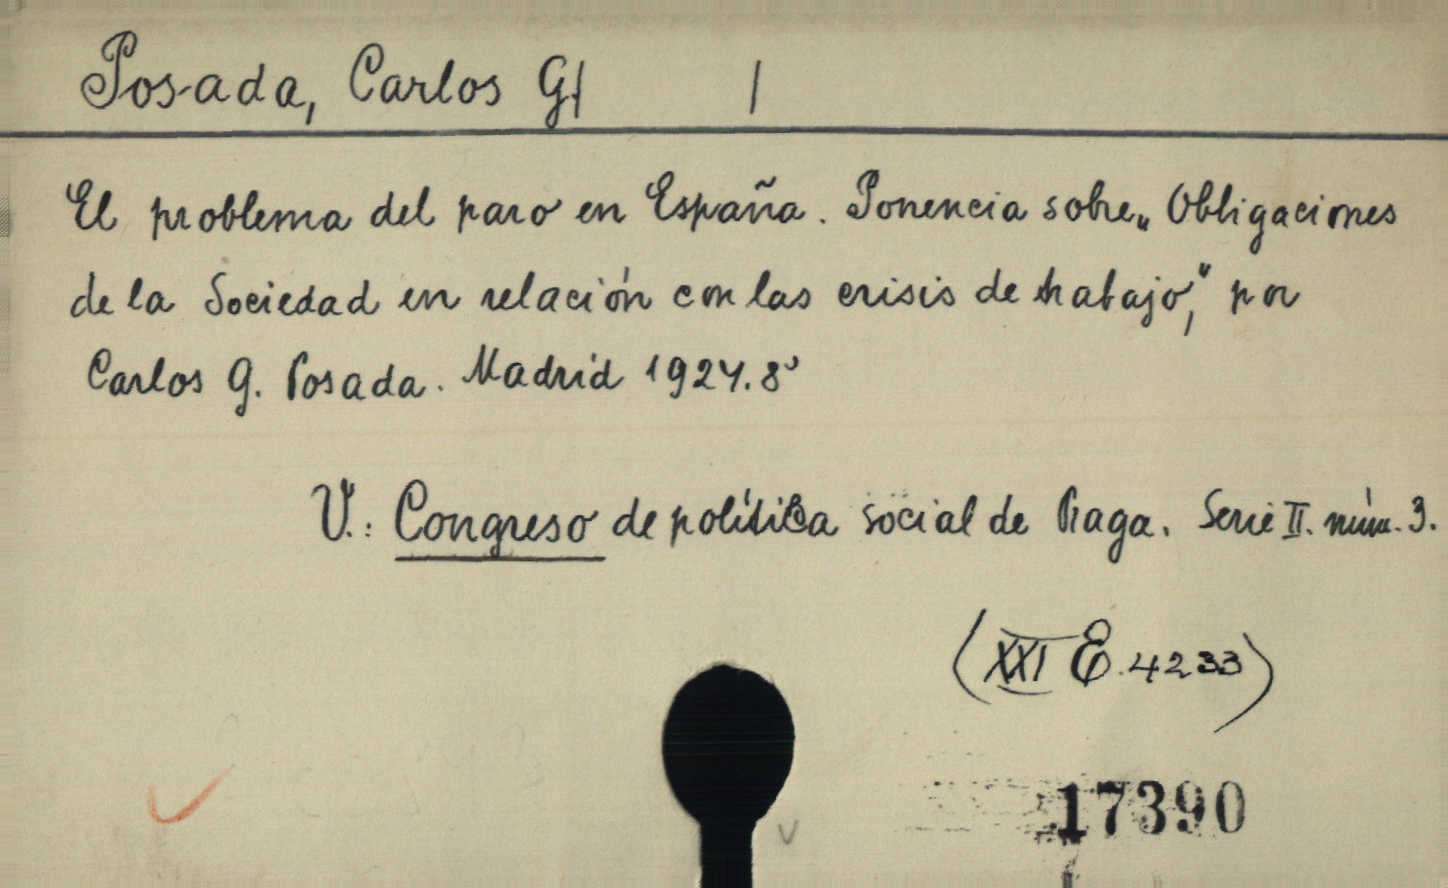 Posada, Carlos G. | |
El problema del paro en España. Ponencia sobre „Obligaciones
de la Sociedad en relación con las crisis de trabajo,” por
Carlos G. Posada. Madrid 1924. 8º
V.: Congreso de política social de Praga. Serie II. núm. 3.
(XXI E. 4233)
17390